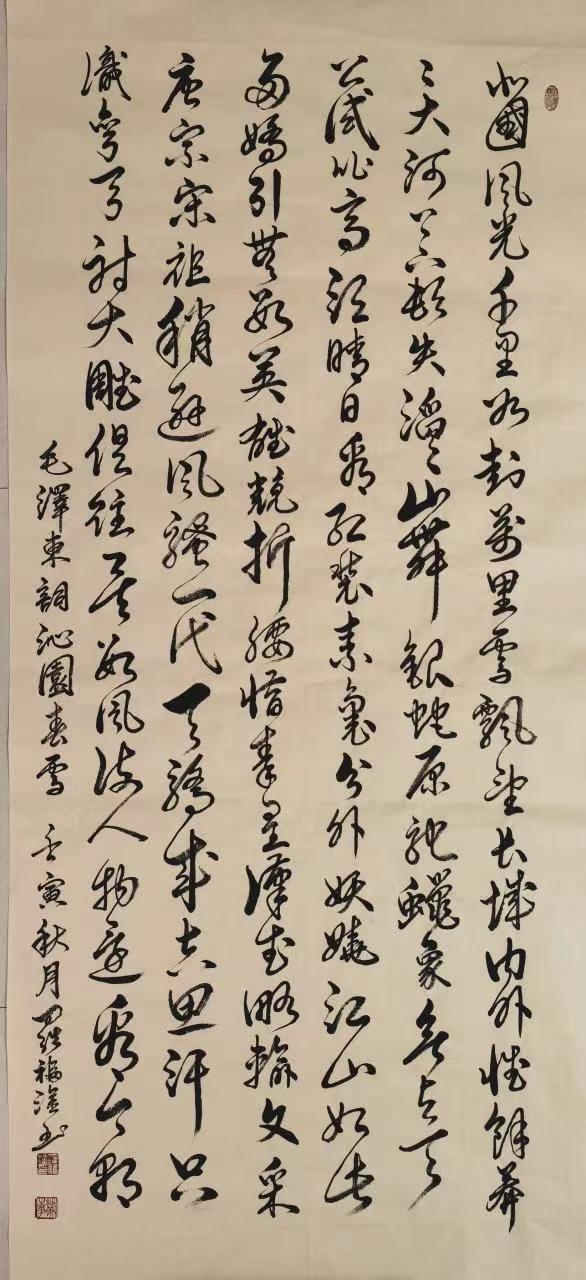 北國風光千里冰封萬里雪飄望長城內外惟餘莽
〻大河上下頓失滔〻山舞銀蛇原馳蠟象欲與天
公試比高須晴日看紅裝素裹分外妖嬈江山如此
多嬌引無數英雄競折腰惜秦皇漢武略輸文采
唐宗宋祖稍遜風騷一代天驕成吉思汗只
識彎弓射大雕俱往矣數風流人物還看今朝
毛澤東詞沁園春雪 壬寅秋月羅福書